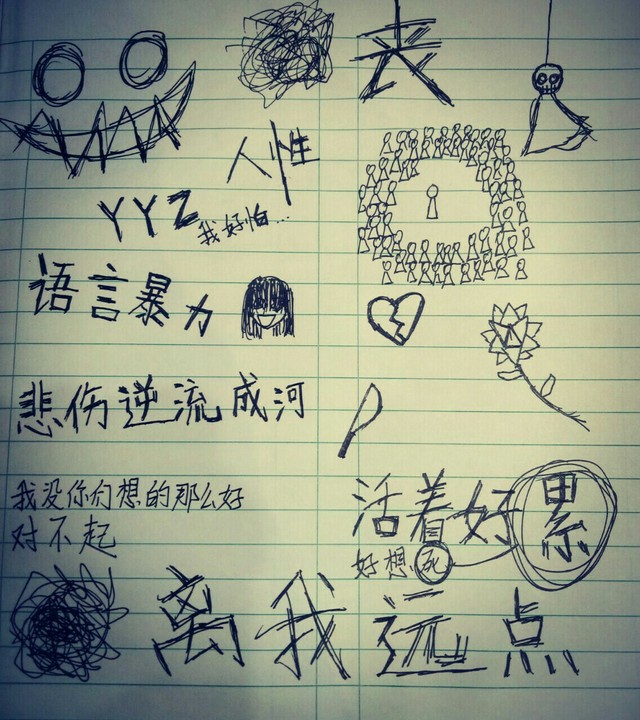 丧
人性
YYZ
我好怕...
语言暴力
悲伤逆流成河
我没你们想的那么好
对不起
活着好累
好想死
离我远点